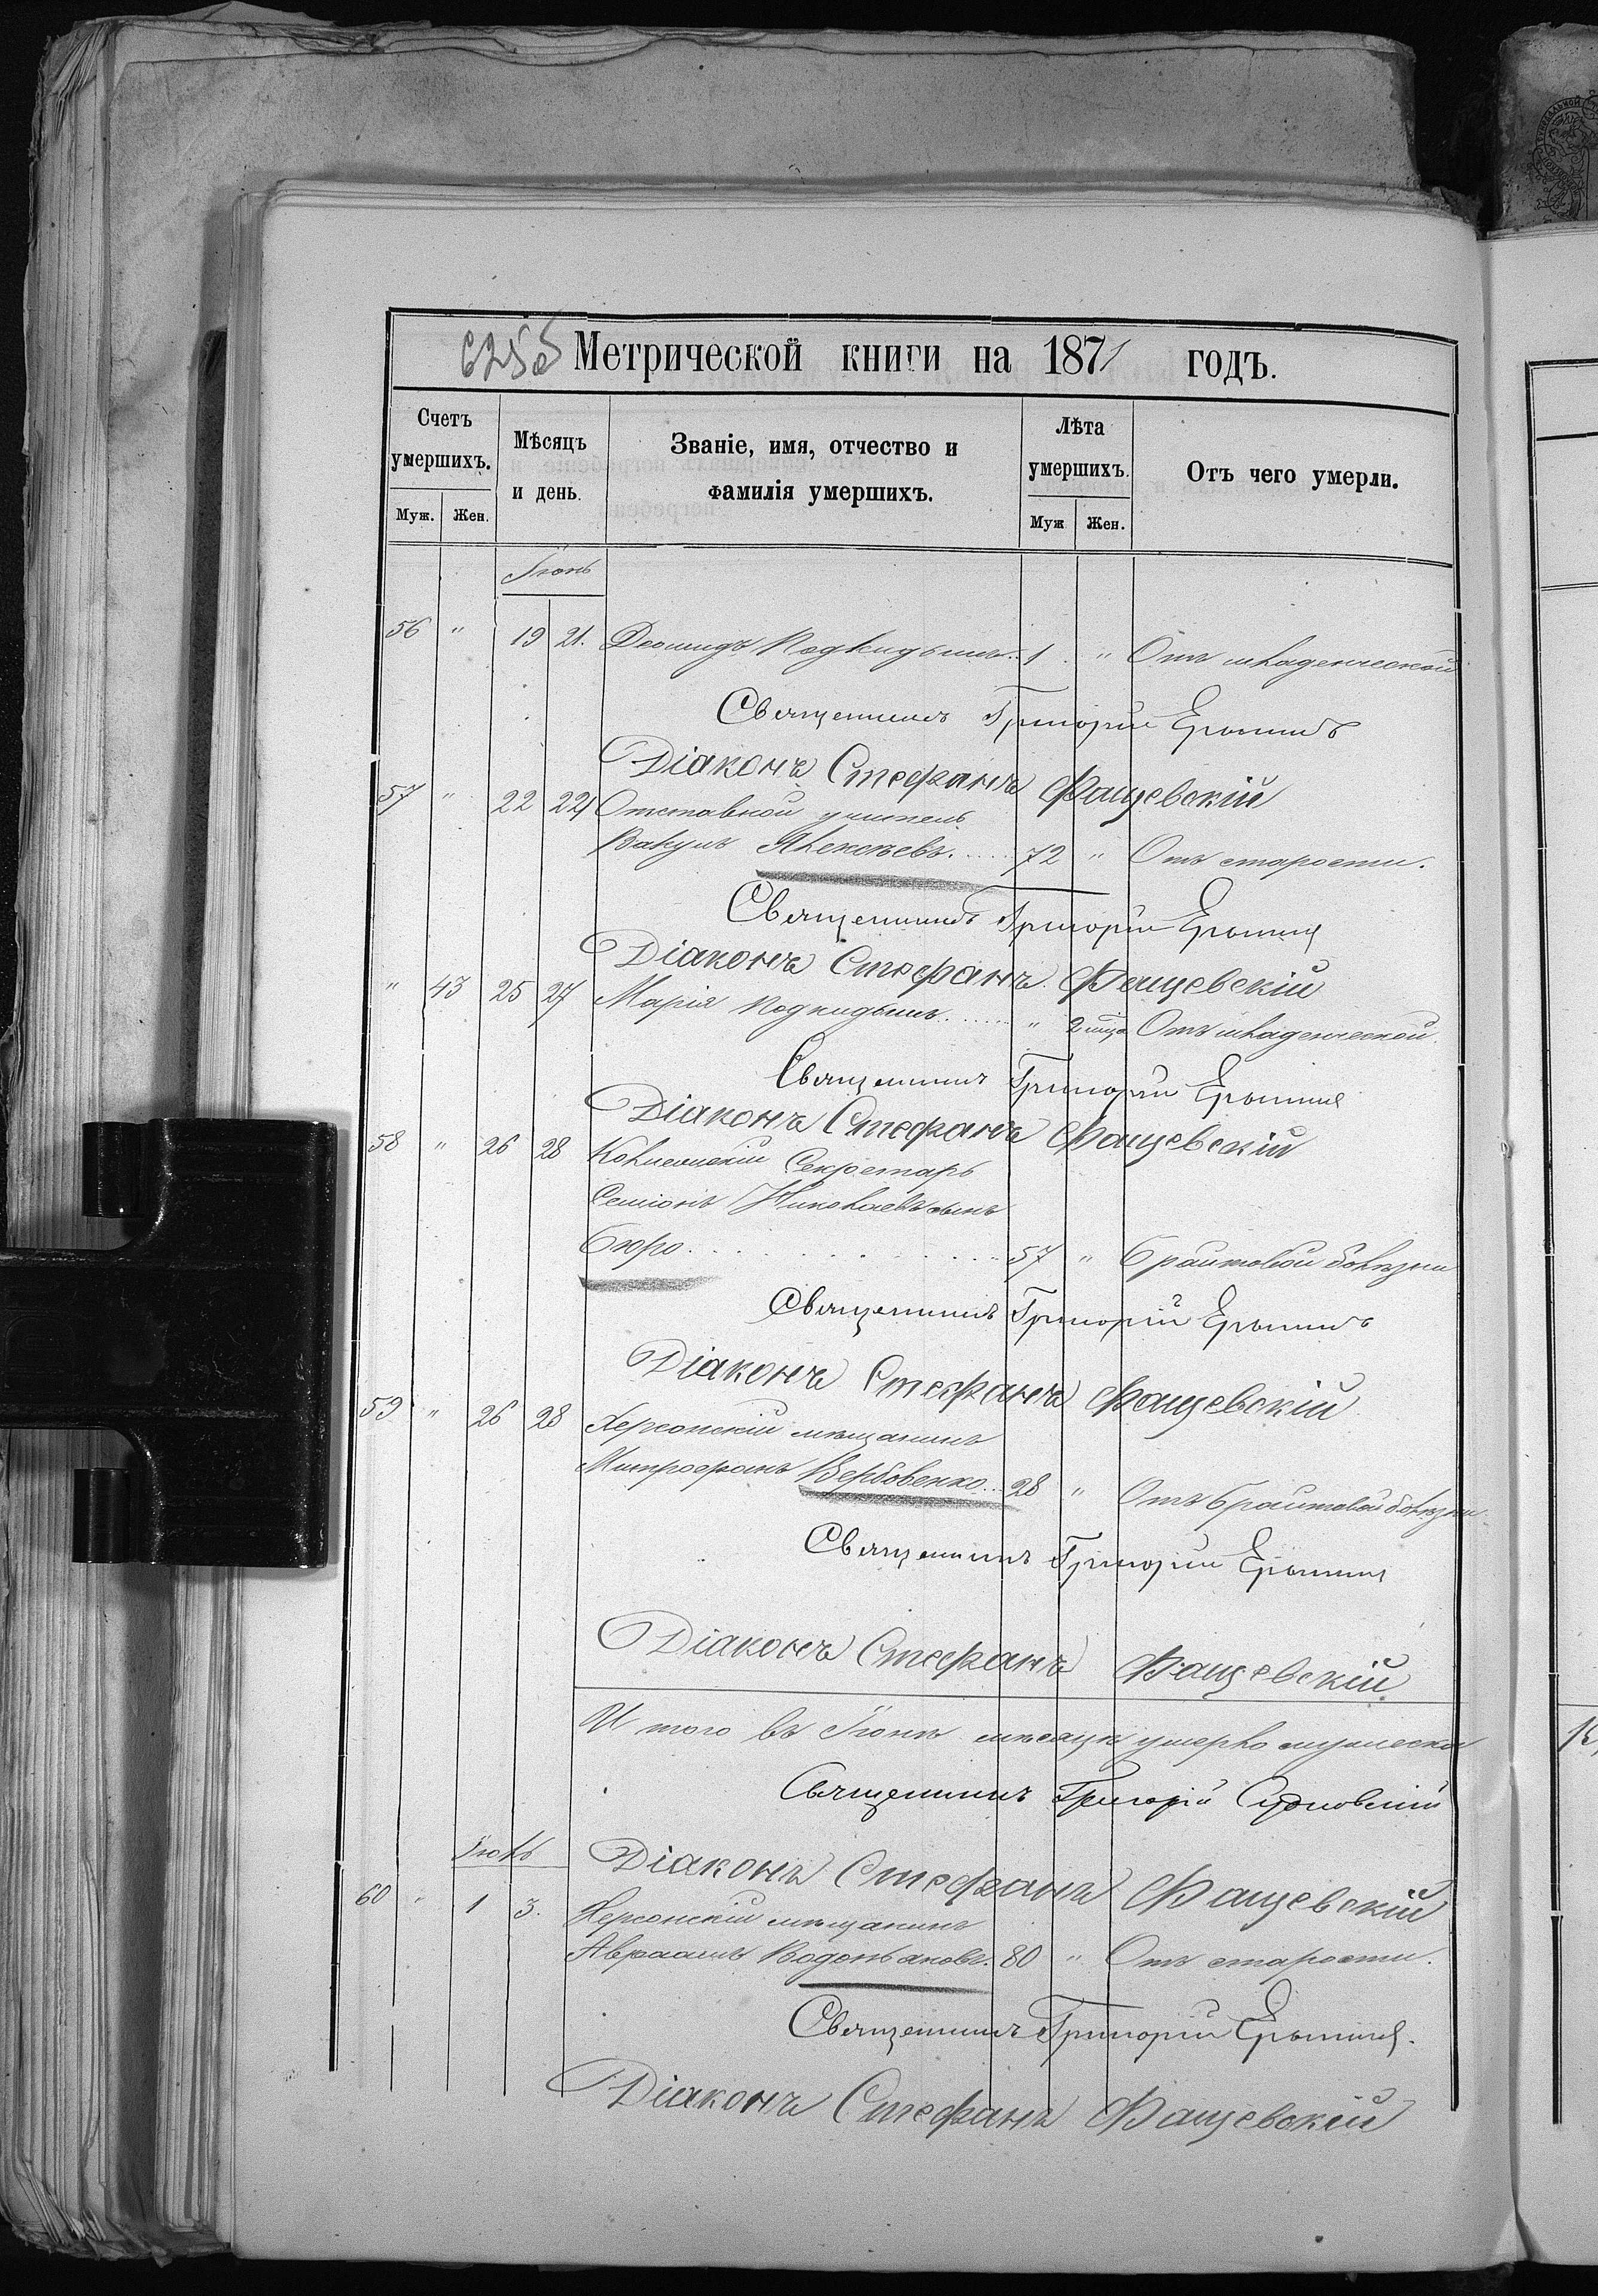 625об Метрической книги на 1871 годъ.
Счетъ умершихъ.
Муж. Жен.
Мѣсяцъ и день.
Званіе, имя, отчество и фамилія умершихъ.
Лѣта умершихъ.
Муж Жен.
Отъ чего умерли.
Іюнь
56 " 19 21. Леонидъ Подкидышъ. 1 " Отъ младенческой
Священникъ Григорій
Діаконъ Стефанъ Фащевскій
57 " 22 24 Отставной учитель
Вакулъ Алексѣевъ. 72 " Отъ старости.
Священникъ Григорій
Діаконъ Стефанъ Фащевскій
" 43 25 27 Марія подкидышъ " 2 мца Отъ младенческой
Священникъ Григорій
Діаконъ Стефанъ Фащевскій
58 " 26 28 Коллежскій Секретарь
Семіонъ Николаевъ сынъ
Бюро 57 " Брайтовой болѣзни
Священникъ Григорій
Діаконъ Стефанъ Фащевскій
59 " 26 28 Херсонскій мѣщанинъ
Митрофанъ Вербовенко 28 " Отъ Брайтовой болѣзни
Священникъ Григорій
Діаконъ Стефанъ Фащевскій
И того въ Іюнѣ мѣсяцѣ умерло мужеска
Священникъ Григорій
Діаконъ Стефанъ Фащевскій
Іюль
60 " 1 3. Херсонскій мѣщанинъ
Авраамъ Водопьяновъ. 80 " Отъ старости.
Священникъ Григорій
Діаконъ Стефанъ Фащевскій